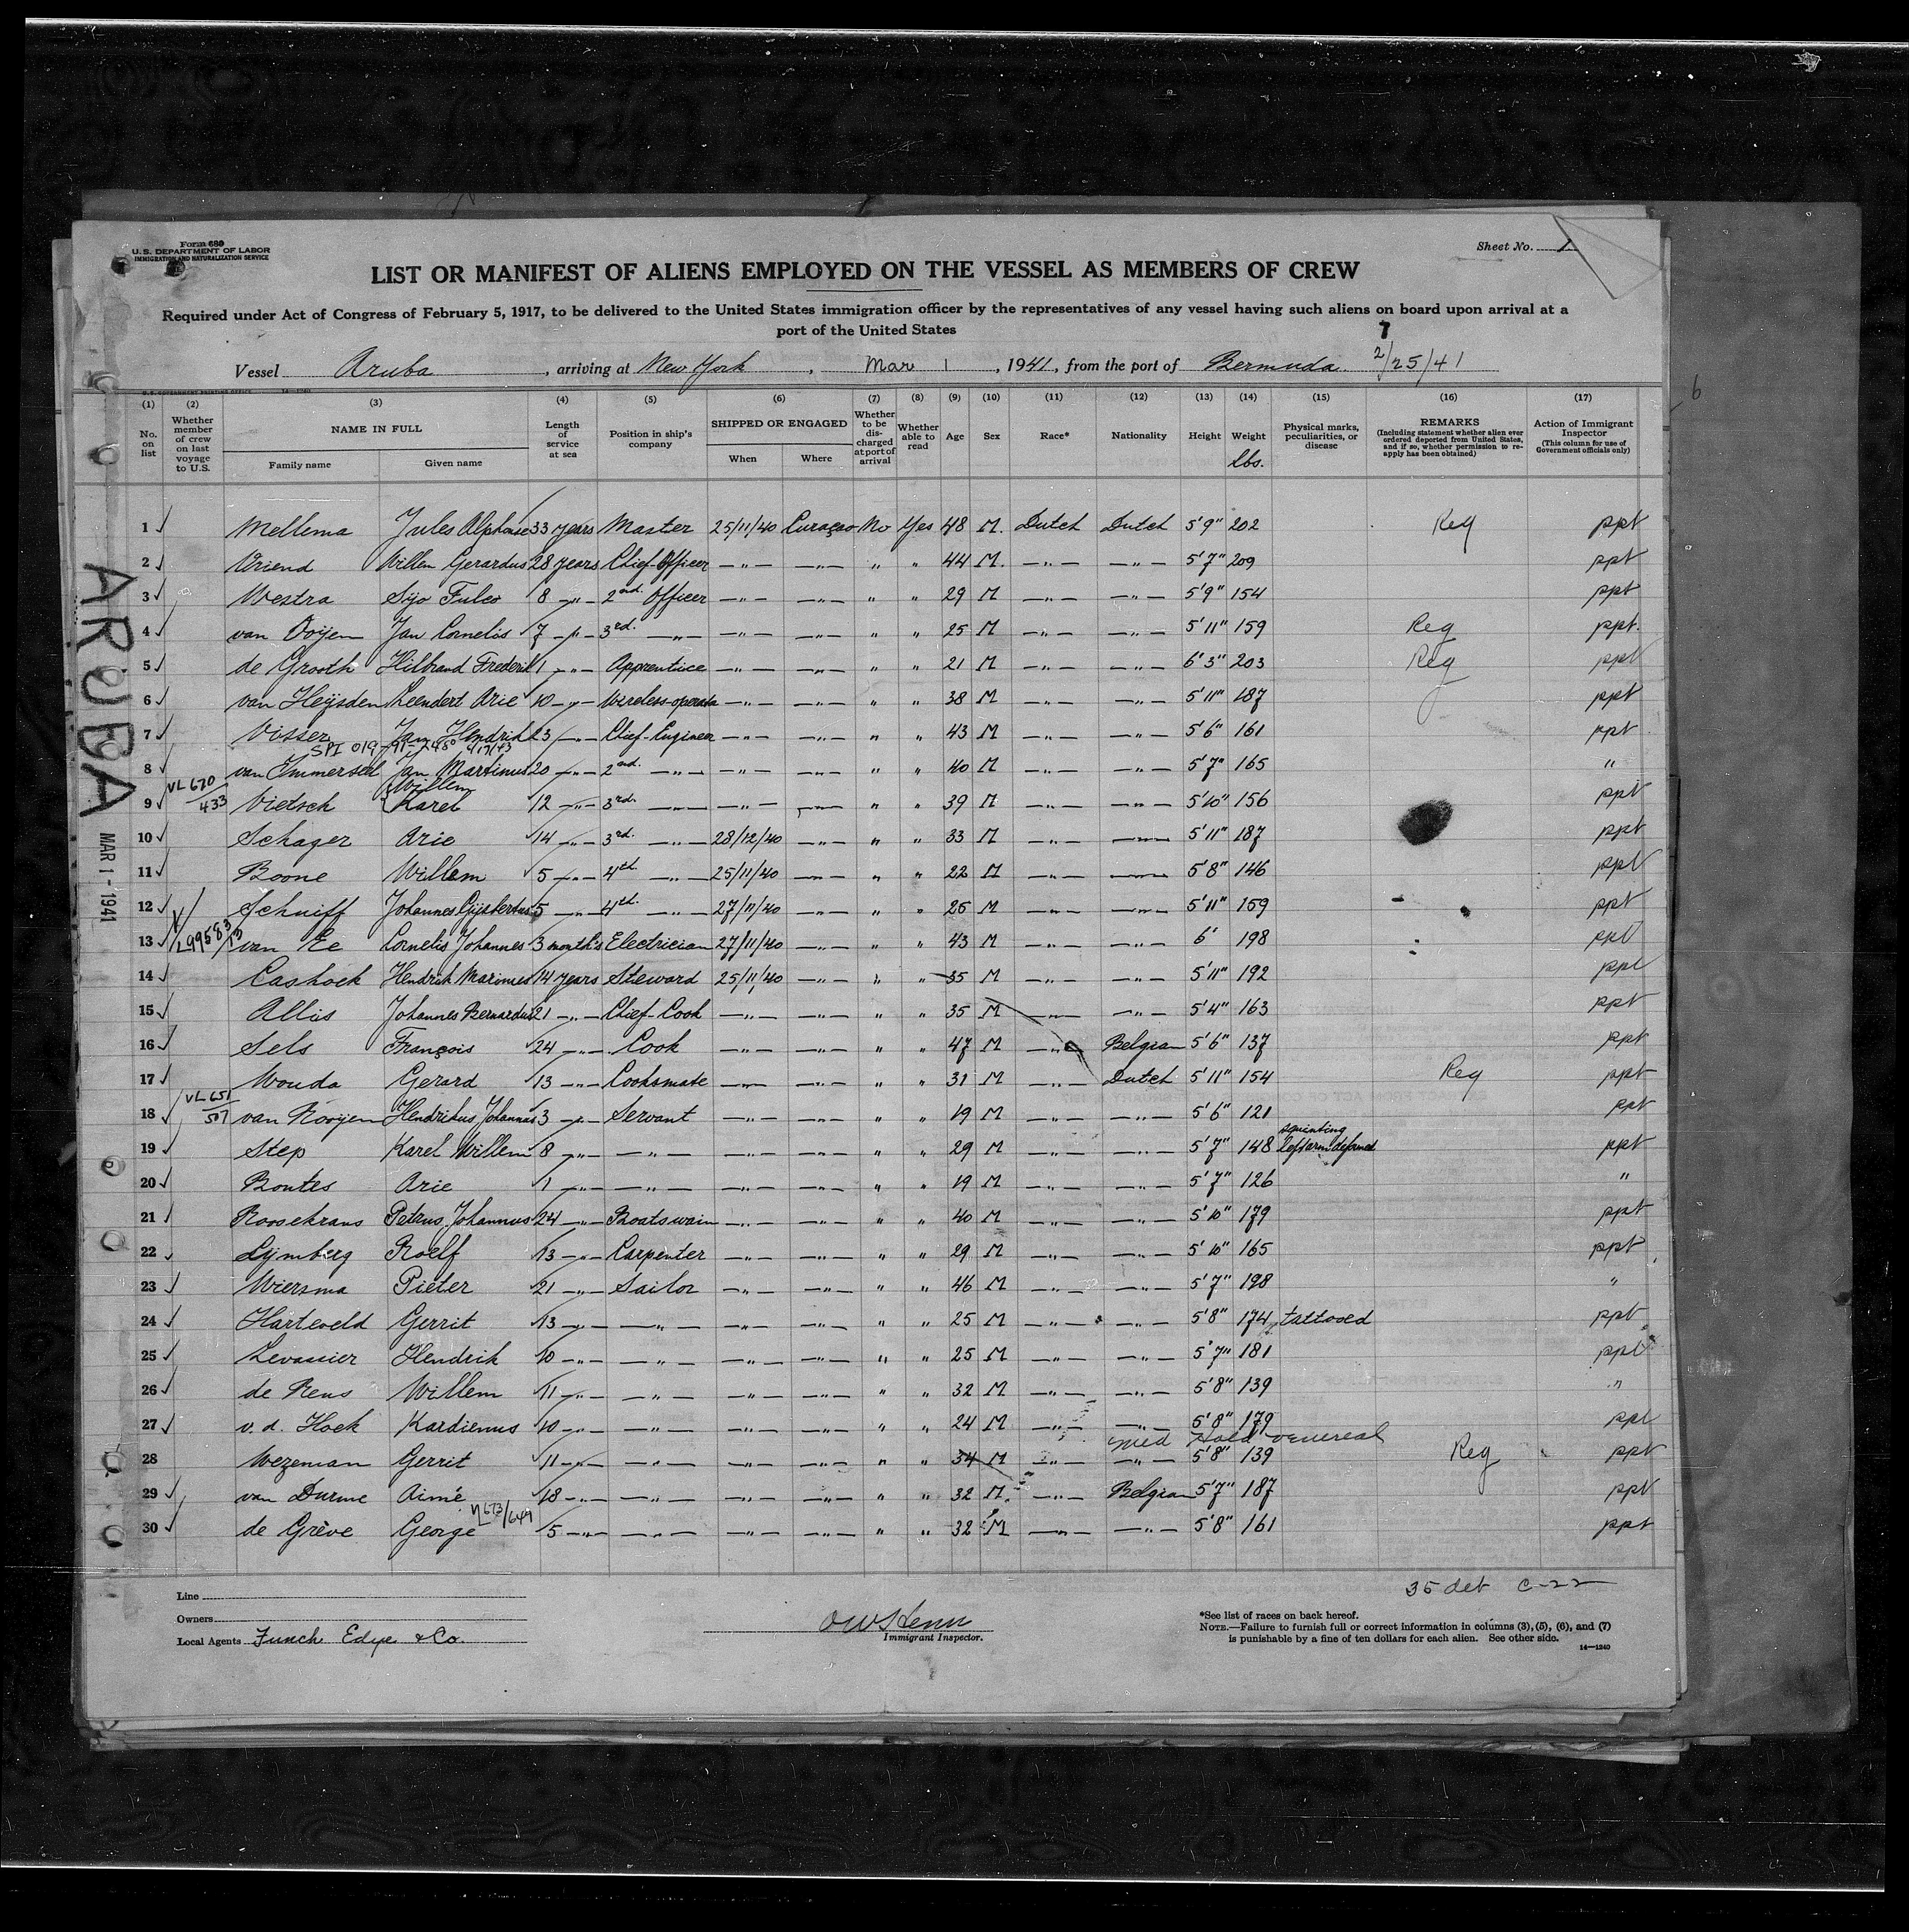 Form 680
U.S. DEPARTMENT OF LABOR
IMMIGRATION AND NATURALIZATION SERVICE
Sheet No. 1
LIST OR MANIFEST OF ALIENS EMPLOYED ON THE VESSEL AS MEMBERS OF CREW
Required under Act of Congress of February 5, 1917, to be delivered to the United States immigration officer by the representatives of any vessel having such aliens on board upon arrival at a
port of the United States
7
Vessel Aruba, arriving at New York, Mar 1, 1941, from the port of Bermuda 2/25/41
U.S. GOVERNMENT PRINTING OFFICE 14—1240
(1) (2) (3) (4) (5) (6) (7) (8) (9) (10) (11) (12) (13) (14) (15) (16) (17)
No. on list
Whether member of crew on last voyage to U.S.
NAME IN FULL
Family name Given name
Length of service at sea
Position in ship's company
SHIPPED OR ENGAGED
When Where
Whether to be discharged at port of arrival
Whether able to read
Age Sex Race* Nationality Height Weight lbs.
Physical marks, peculiarities, or disease
REMARKS
(Including statement whether alien ever ordered deported from United States, and if so, whether permission to reapply has been obtained)
Action of Immigrant Inspector
(This column for use of Government officials only)
1 ✓ Mellema Jules Alphonse 33 years Master 25/11/40 Curaçao No Yes 48 M. Dutch Dutch 5'9" 202 Reg ppt
2 ✓ Vriend Willem Gerardus 28 years Chief-Officer —"— —"— " " 44 M. —"— —"— 5'7" 209 ppt
3 ✓ Westra Sijo Fulco 8 —"— 2nd. Officer —"— —"— " " 29 M —"— —"— 5'9" 154 ppt
4 ✓ van Ooijen Jan Cornelis 7 —"— 3rd. —"— —"— —"— " " 25 M —"— —"— 5'11" 159 Reg ppt.
5 ✓ de Grooth Hilbrand Frederik 1 —"— Apprentice —"— —"— " " 21 M —"— —"— 6'3" 203 Reg ppt
6 ✓ van Heijsden Leendert Arie 10 —"— Wireless-operator —"— —"— " " 38 M —"— —"— 5'11" 187 ppt
7 ✓ Visser Jan Hendrik 23 —"— Chief-Engineer —"— —"— " " 43 M —"— —"— 5'6" 161 ppt
8 ✓ van Immerseel Jan Martinus 20 —"— 2nd. —"— —"— —"— " " 40 M —"— —"— 5'7" 165 "
VL 670/433
9 ✓ Vietsch Willem Karel 12 —"— 3rd. —"— —"— —"— " " 39 M —"— —"— 5'10" 156 ppt
10 ✓ Schager Arie 14 —"— 3rd. —"— 28/12/40 —"— " " 33 M —"— —"— 5'11" 187 ppt
11 ✓ Boone Willem 5 —"— 4th. —"— 25/11/40 —"— " " 22 M —"— —"— 5'8" 146 ppt
12 ✓ Schuiff Johannes Gijsbertus 5 —"— 4th. —"— 27/11/40 —"— " " 26 M —"— —"— 5'11" 159 ppt
13 ✓ van Ee Cornelis Johannes 3 months Electrician 27/11/40 —"— " " 43 M —"— —"— 6' 198 ppt
14 ✓ Cashoek Hendrik Marinus 14 years Steward 25/11/40 —"— " " 35 M —"— —"— 5'11" 192 ppt
15 ✓ Allis Johannes Bernardus 21 —"— Chief-Cook —"— —"— " " 35 M —"— —"— 5'4" 163 ppt
16 ✓ Sels François 24 —"— Cook —"— —"— " " 47 M —"— Belgian 5'6" 137 ppt
17 ✓ Wouda Gerard 13 —"— Cooksmate —"— —"— " " 31 M —"— Dutch 5'11" 154 Reg ppt
VL 651/507
18 ✓ van Rooijen Hendrikus Johannes 3 —"— Servant —"— —"— " " 19 M —"— —"— 5'6" 121 ppt
19 ✓ Step Karel Willem 8 —"— —"— —"— —"— " " 29 M —"— —"— 5'7" 148 squinting left arm deformed ppt
20 ✓ Bontes Arie 1 —"— —"— —"— —"— " " 19 M —"— —"— 5'7" 126 "
21 ✓ Roosekrans Petrus Johannus 24 —"— Boatswain —"— —"— " " 40 M —"— —"— 5'10" 179 ppt
22 ✓ Lijmberg Roelf 13 —"— Carpenter —"— —"— " " 29 M —"— —"— 5'10" 165 ppt
23 ✓ Wiersma Pieter 21 —"— Sailor —"— —"— " " 46 M —"— —"— 5'7" 198 "
24 ✓ Harteveld Gerrit 13 —"— —"— —"— —"— " " 25 M —"— —"— 5'8" 174 tattooed ppt
25 ✓ Levassier Hendrik 10 —"— —"— —"— —"— " " 25 M —"— —"— 5'7" 181 ppt
26 ✓ de Reus Willem 11 —"— —"— —"— —"— " " 32 M —"— —"— 5'8" 139 "
27 ✓ v.d. Hoek Kardienus 10 —"— —"— —"— —"— " " 24 M —"— —"— 5'8" 179 ppt
med Hold venereal
28 Wezeman Gerrit 11 —"— —"— —"— —"— " " 34 M —"— —"— 5'8" 139 Reg ppt
29 ✓ van Durme Aimé 18 —"— —"— —"— —"— " " 32 M. —"— Belgian 5'7" 187 ppt
30 ✓ de Grève George 5 —"— —"— —"— —"— " " 32 M —"— —"— 5'8" 161 ppt
ARUBA
MAR 1 - 1941
35 det C-22
Line
Owners
Local Agents Funch Edye & Co.
Immigrant Inspector.
*See list of races on back hereof.
NOTE.—Failure to furnish full or correct information in columns (3), (5), (6), and (7)
is punishable by a fine of ten dollars for each alien. See other side.
14—1240